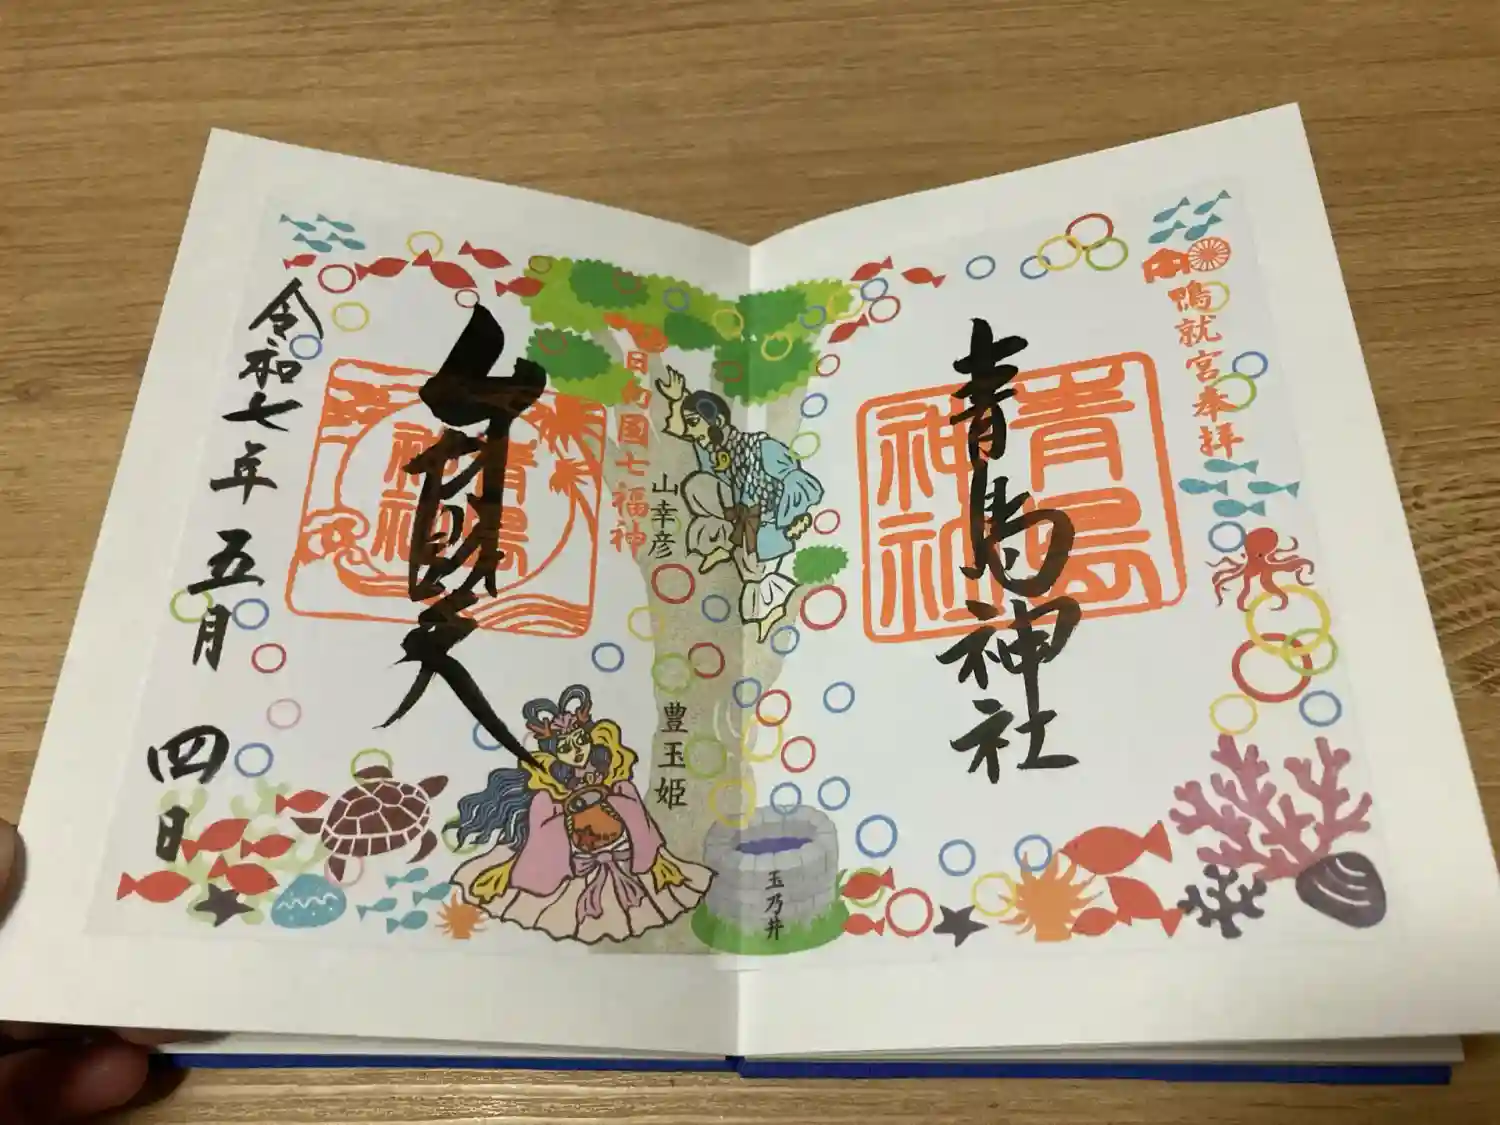 鴨就宮奉拝
青島神社
青島
神社
山幸彦
豊玉姫
玉乃井
日向國七福神
弁財天
青島
神社
令和七年五月四日